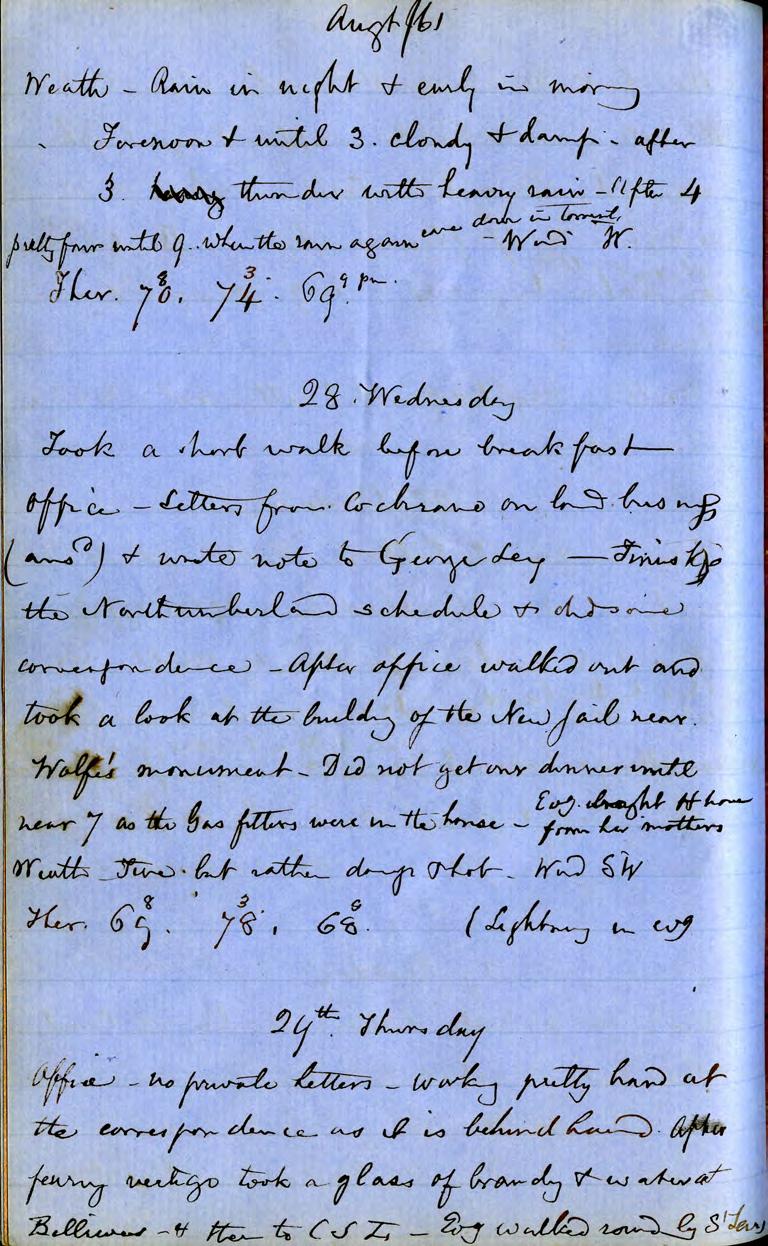 Augt /61
Weath - Rain in night & early in morng
Forenoon & until 3. cloudy & damp - after
3. heavy thunder with heavy rain - After 4
pretty fair until 9. when the rain again came down in torrents, - Wind W.
Ther. 70.8 74.3 69.9 pm.
28. Wednesday
Took a short walk before breakfast
Office - Letters from Cochrane on land busings
(ansd) & wrote note to George Ley - Finishg
the Northumberland schedule & did some
correspondence - After office walked out and
took a look at the buildg of the New Jail near
Wolfe's monument - Did not get our dinner until
near 7 as the Gas fitters were in the house - Evg. brought H home from her mothers
Weath Fine but rather damp & hot. Wind SW
Ther. 69.8 78.3 68.9 (Lightning in evg
29th. Thursday
Office - no private letters - workg pretty hard at
the correspondence as it is behind hand. After
vertigo took a glass of brandy & water at
& then to C S I - Evg walked round by St